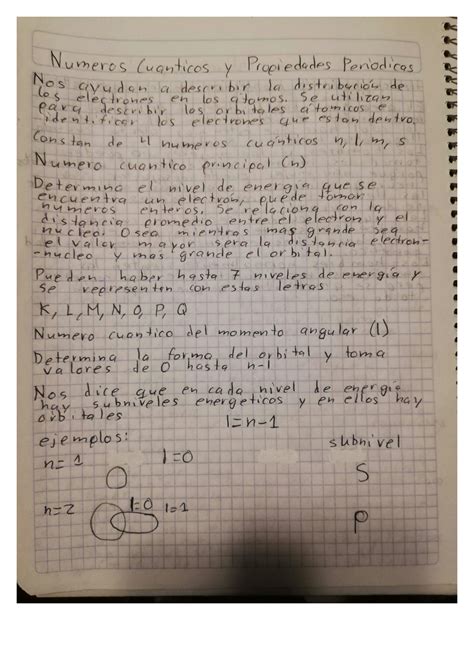 Numeros Cuanticos y Propiedades Periodicas
Nos ayudan a describir la distribución de
los electrones en los atomos. Se utilizan
para describir los orbitales atomicos e
identificar los electrones que estan dentro.
Constan de 4 numeros cuánticos n, l, m, s
Numero cuantico principal (n)
Determina el nivel de energia que se
encuentra un electron, puede tomar
numeros enteros. Se relaciona con la
distancia promedio entre el electron y el
nucleo. O sea mientras mas grande sea
el valor mayor sera la distancia electron-
-nucleo y mas grande el orbital.
Pueden haber hasta 7 niveles de energia y
se representen con estas letras
K, L, M, N, O, P, Q
Numero cuantico del momento angular (l)
Determina la forma del orbital y toma
valores de 0 hasta n-1
Nos dice que en cada nivel de energia
hay subniveles energeticos y en ellos hay
orbitales
l=n-1
ejemplos:
subnivel
n=1 l=0
S
n=2 l=0 l=1
P